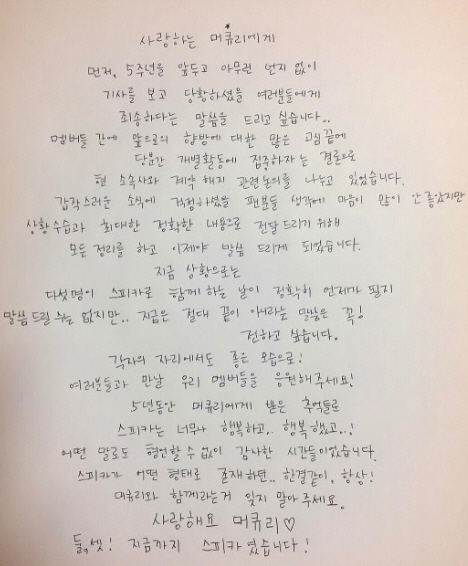 사랑하는 머큐리에게
먼저, 5주년을 앞두고 아무런 언지 없이
기사를 보고 당황하셨을 여러분들에게
죄송하다는 말씀을 드리고 싶습니다..
멤버들 간에 앞으로의 향방에 대한 많은 고심 끝에
당분간 개별활동에 집중하자는 결론으로
현 소속사와 계약 해지 관련 논의를 나누고 있었습니다.
갑작스러운 소식에 걱정하셨을 팬분들 생각에 마음이 많이 안 좋았지만
상황 수습과 최대한 정확한 내용으로 전달 드리기 위해
모든 정리를 하고 이제야 말씀 드리게 되었습니다.
지금 상황으로는
다섯명이 스피카로 함께 하는 날이 정확히 언제가 될지
말씀 드릴 수는 없지만.. 지금은 절대 끝이 아니라는 말씀은 꼭!
전하고 싶습니다.
각자의 자리에서도 좋은 모습으로!
여러분들과 만날 우리 멤버들을 응원해주세요!
5년동안 머큐리에게 받은 추억들로
스피카는 너무나 행복하고.. 행복했고..!
어떤 말로도 형언할 수 없이 감사한 시간들이었습니다.
스피카가 어떤 형태로 존재하던.. 한결같이, 항상!
머큐리와 함께라는거 잊지 말아주세요.
사랑해요 머큐리♡
둘, 셋! 지금까지 스피카였습니다!